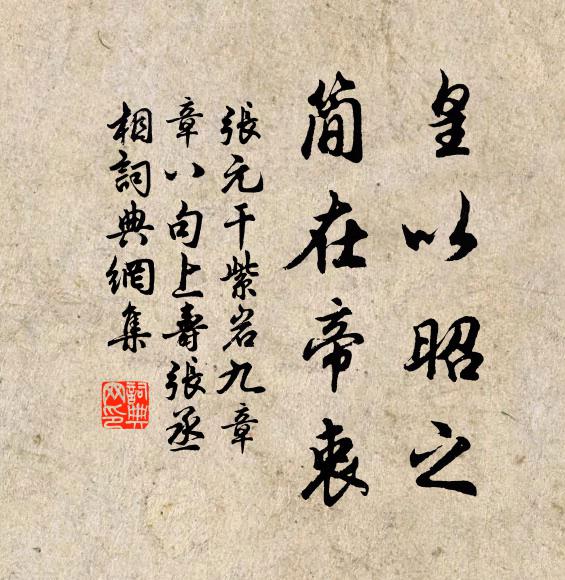 皇以昭之
简在帝衷
張元干紫岩九章
章八句上壽張丞
相詞典網集
詞典网印